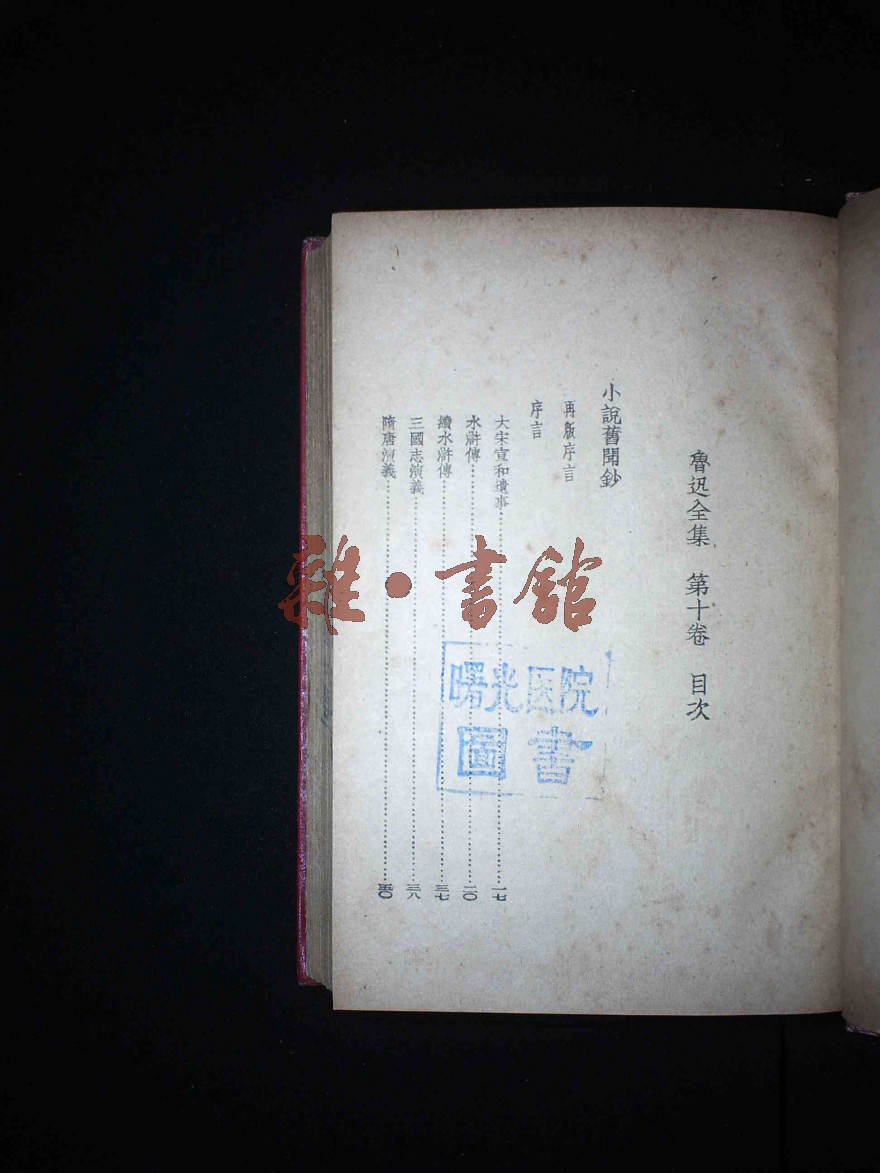 魯迅全集 第十卷 目次
小說舊聞鈔
再版序言
序言
大宋宣和遺事……一七
水滸傳……二〇
續水滸傳……三七
三國志演義……三八
隋唐演義……五〇
雜·書館
曙光医院
圖書